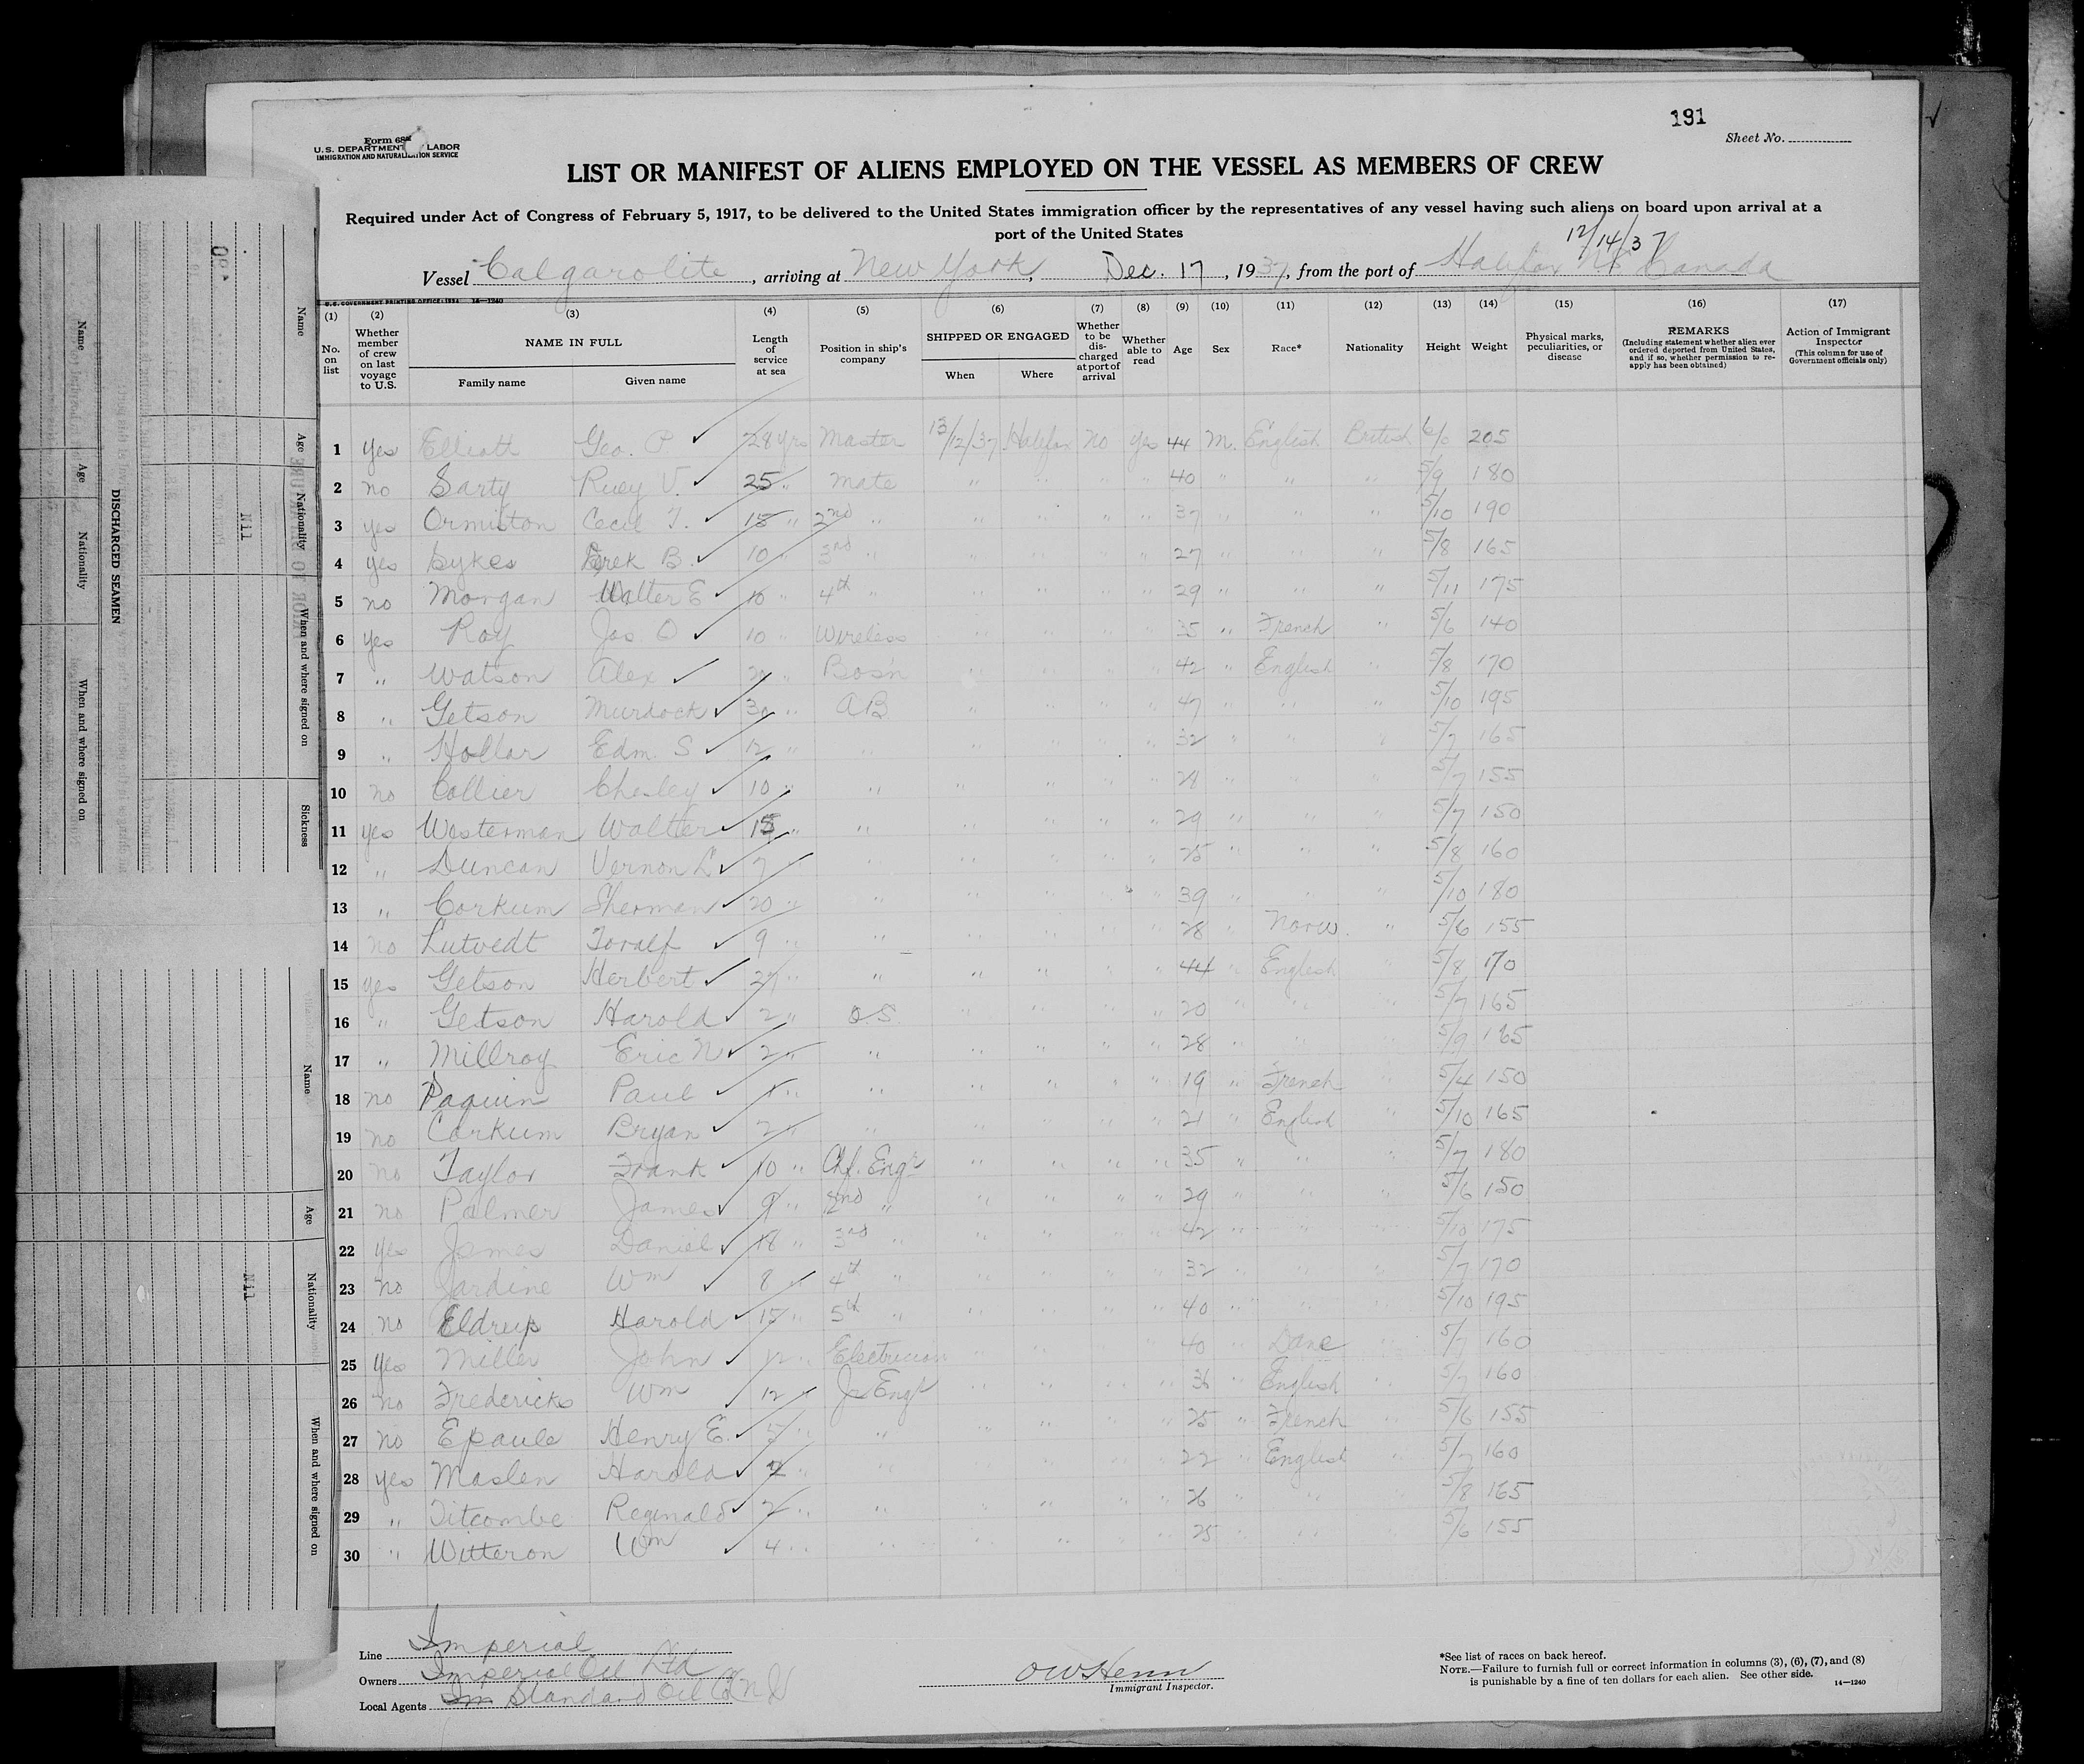 191
Sheet No.
Form 68
U.S. DEPARTMENT LABOR
IMMIGRATION AND NATURALIZATION SERVICE
LIST OR MANIFEST OF ALIENS EMPLOYED ON THE VESSEL AS MEMBERS OF CREW
Required under Act of Congress of February 5, 1917, to be delivered to the United States immigration officer by the representatives of any vessel having such aliens on board upon arrival at a
port of the United States
12/14/37
Vessel Calgarolite, arriving at New York, Dec. 17, 1937, from the port of Halifax NS Canada
U.S. GOVERNMENT PRINTING OFFICE: 1934 14—1240
(1) (2) (3) (4) (5) (6) (7) (8) (9) (10) (11) (12) (13) (14) (15) (16) (17)
No. on list
Whether member of crew on last voyage to U.S.
NAME IN FULL
Family name Given name
Length of service at sea
Position in ship's company
SHIPPED OR ENGAGED
When Where
Whether to be discharged at port of arrival
Whether able to read
Age Sex Race* Nationality Height Weight
Physical marks, peculiarities, or disease
REMARKS
(Including statement whether alien ever ordered deported from United States, and if so, whether permission to reapply has been obtained)
Action of Immigrant Inspector
(This column for use of Government officials only)
1 yes Elliott Geo. P ✓ 28 yrs Master 13/12/37 Halifax no yes 44 M. English British 6/0 205
2 no Sarty Ruey V. ✓ 25 " Mate " " " " 40 " " " 5/9 180
3 yes Ormiston Cecil T. ✓ 15 " 2nd " " " " " 37 " " " 5/10 190
4 yes Sykes Derek B. ✓ 10 " 3rd " " " " " 27 " " " 5/8 165
5 no Morgan Walter E ✓ 10 " 4th " " " " " 29 " " " 5/11 175
6 yes Roy Jas O ✓ 10 " Wireless " " " " 35 " French " 5/6 140
7 " Watson Alex ✓ " Bosn " " " " 42 " English " 5/8 170
8 " Getson Murdock ✓ 30 " AB " " " " 47 " " " 5/10 195
9 " Hollar Edm. S ✓ 12 " " " " " " 32 " " " 5/7 165
10 no Collier Chesley ✓ 10 " " " " " " 28 " " " 5/7 155
11 yes Westerman Walter ✓ 15 " " " " " " 29 " " " 5/7 150
12 " Duncan Vernon L ✓ 7 " " " " " " 25 " " " 5/8 160
13 " Corkum Sherman ✓ 20 " " " " " " 39 " " " 5/10 180
14 no Lutvedt Toralf ✓ 9 " " " " " " 28 " Norw. " 5/6 155
15 yes Getson Herbert ✓ 27 " " " " " " 44 " English " 5/8 170
16 " Getson Harold ✓ 2 " O.S. " " " " 20 " " " 5/7 165
17 " Millroy Eric N ✓ 2 " " " " " " 28 " " " 5/9 165
18 no Paquin Paul ✓ 1 " " " " " " 19 " French " 5/4 150
19 no Corkum Bryan ✓ 2 " " " " " " 21 " English " 5/10 165
20 no Taylor Frank ✓ 10 " Chf. Engr " " " " 35 " " " 5/7 180
21 no Palmer James ✓ 9 " 2nd " " " " " 29 " " " 5/6 150
22 yes James Daniel ✓ 18 " 3rd " " " " " 42 " " " 5/10 175
23 no Jardine Wm ✓ 8 " 4th " " " " " 32 " " " 5/7 170
24 no Eldrup Harold ✓ 15 " 5th " " " " " 40 " " " 5/10 195
25 yes Miller John ✓ 12 " Electrician " " " " 40 " Dane " 5/7 160
26 no Fredericks Wm ✓ 12 " Jr Engr " " " " 36 " English " 5/7 160
27 no Epaule Henry E. ✓ 5 " " " " " " 25 " French " 5/6 155
28 yes Maslen Harold ✓ 2 " " " " " " 22 " English " 5/7 160
29 " Titcombe Reginald ✓ 2 " " " " " " 26 " " " 5/8 165
30 " Witteron Wm ✓ 4 " " " " " " 25 " " " 5/6 155
Line Imperial
Owners Imperial Oil Ltd
Local Agents Standard Oil Co N J
OW Henn
Immigrant Inspector.
*See list of races on back hereof.
NOTE.—Failure to furnish full or correct information in columns (3), (6), (7), and (8)
is punishable by a fine of ten dollars for each alien. See other side.
14—1240
DISCHARGED SEAMEN
Name Age Nationality When and where signed on
Name Age Nationality When and where signed on Sickness
Nil
Name Age Nationality When and where signed on
Nil